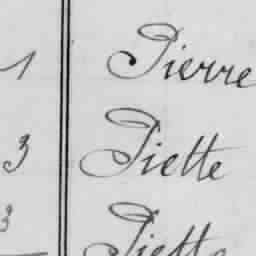 1 Pierre
3 Piette
3 Piette